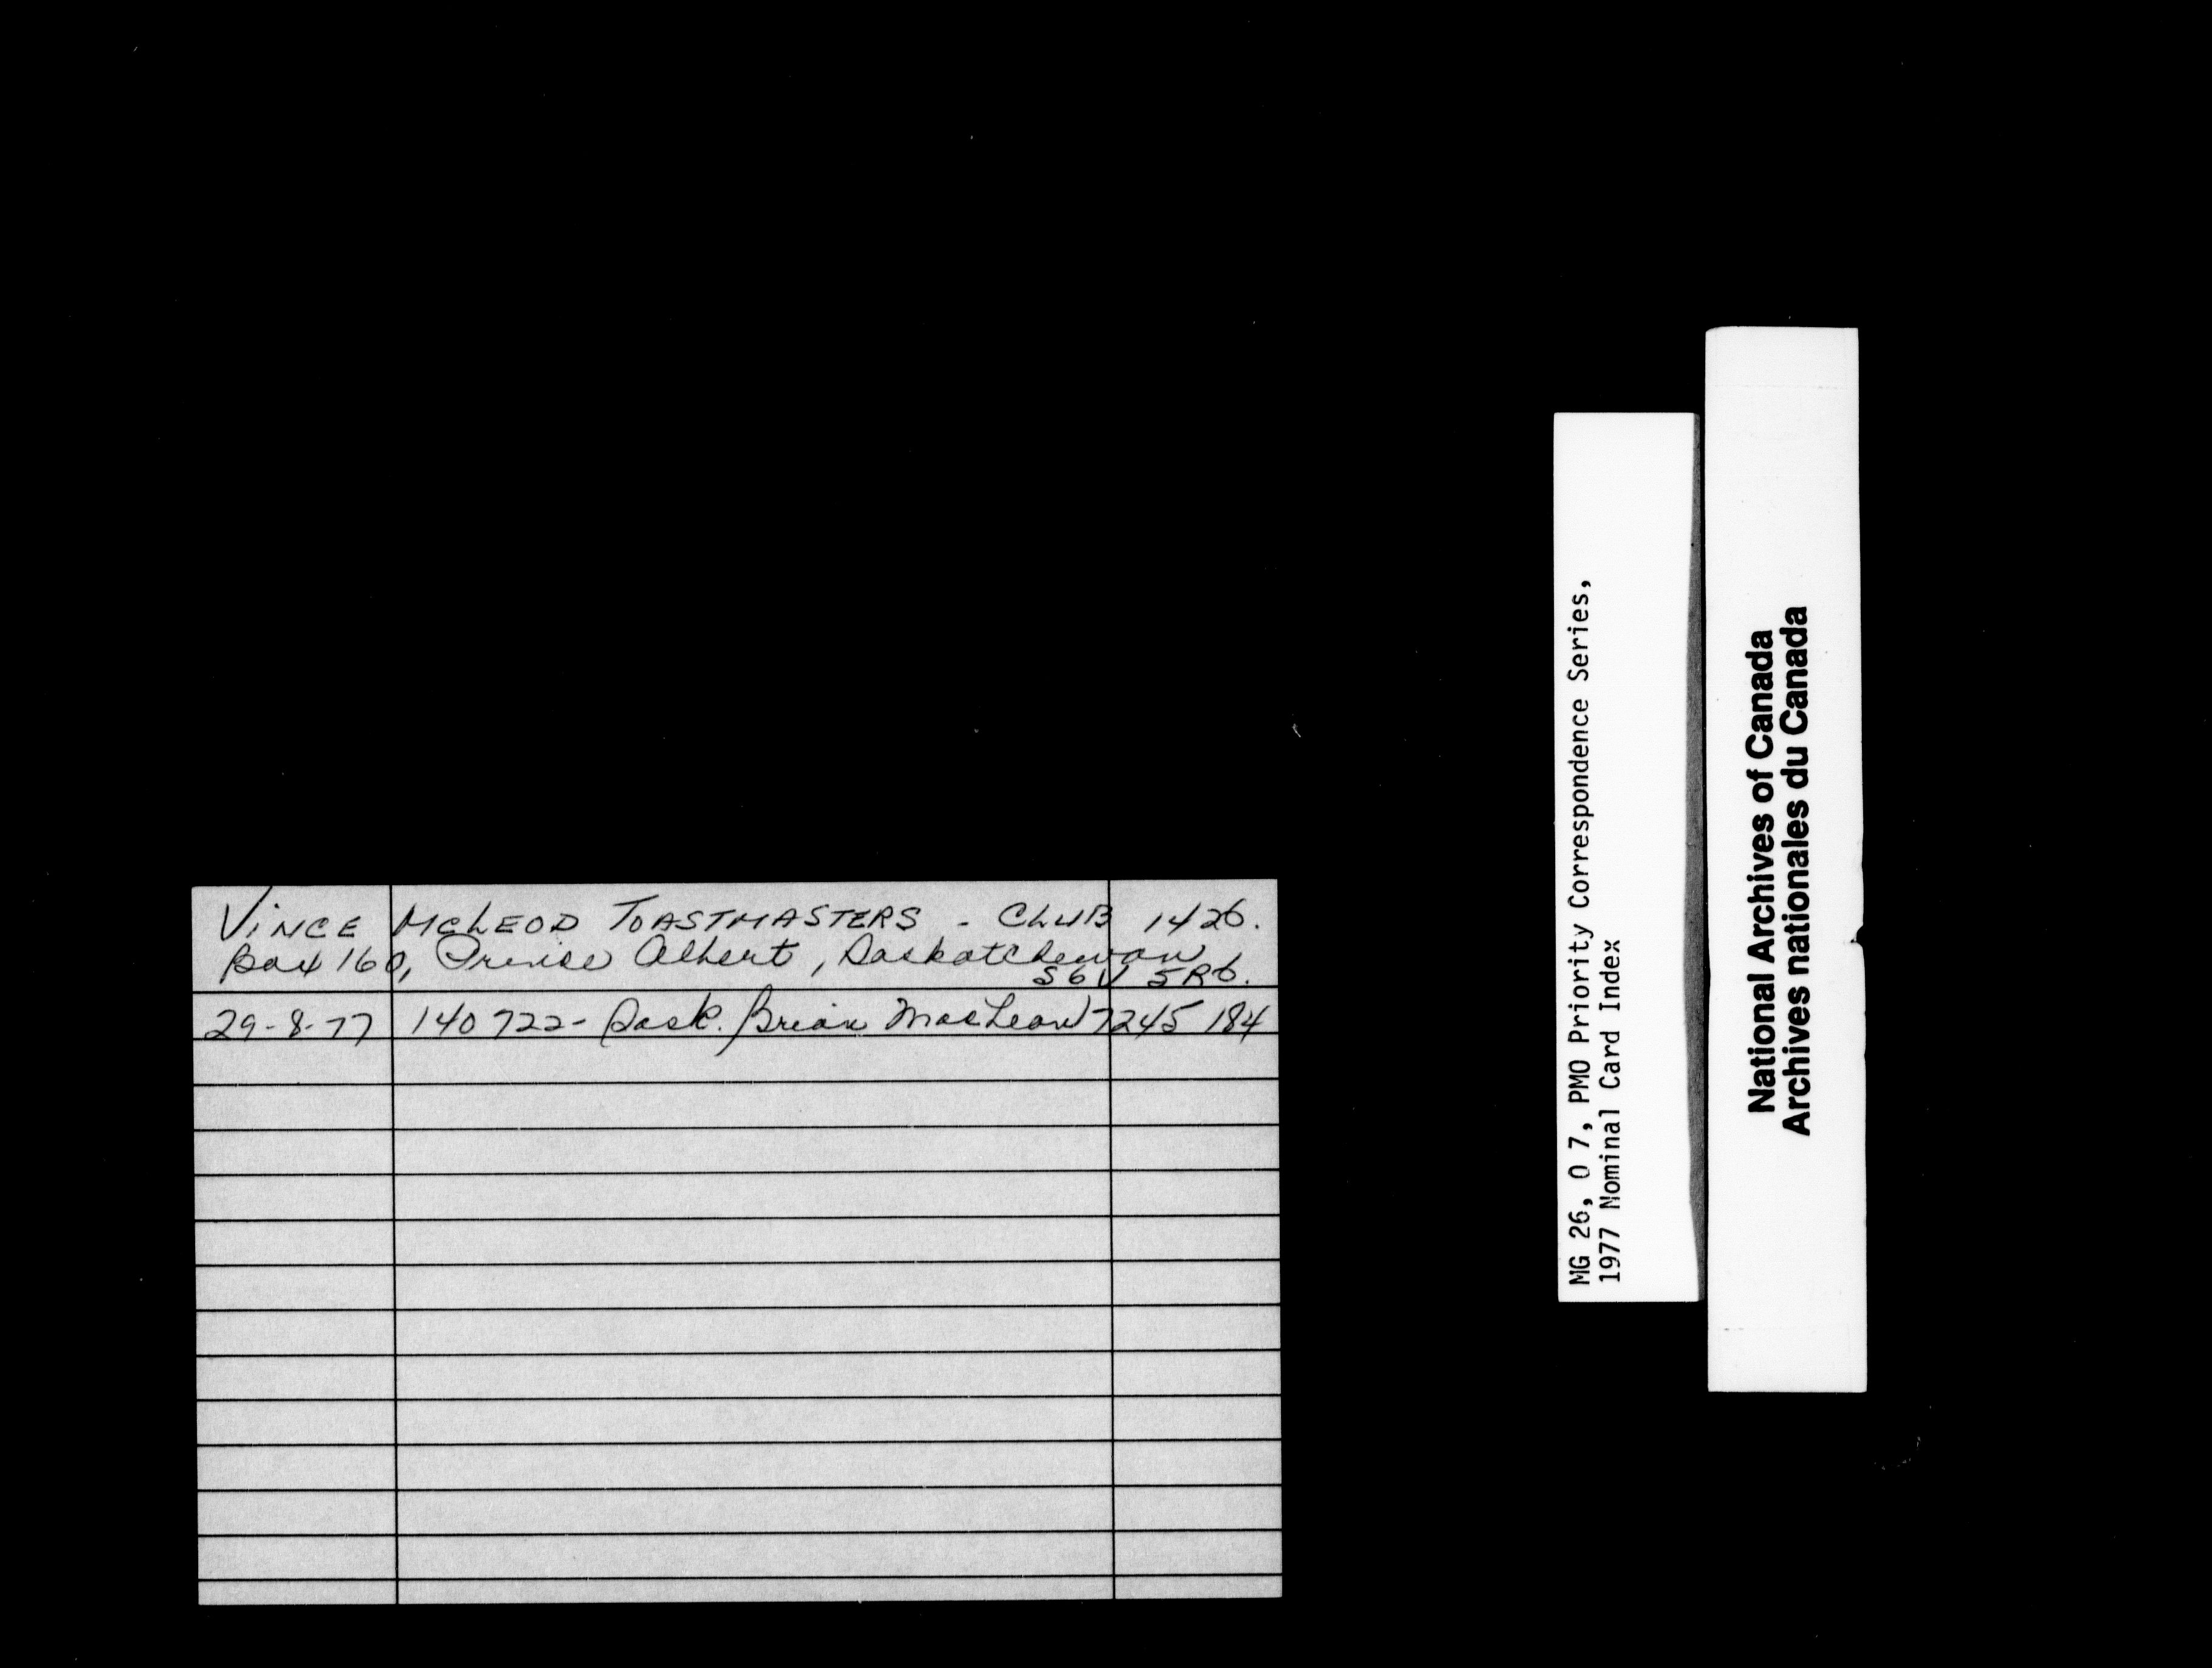 VINCE MCLEOD TOASTMASTERS - CLUB 1426.
Box 160, Prince Albert, Saskatchewan
S6V 5R6.
29-8-77 140722- Sask. Brian MacLean 7245 184
MG 26, O 7, PMO Priority Correspondence Series,
1977 Nominal Card Index
National Archives of Canada
Archives nationales du Canada